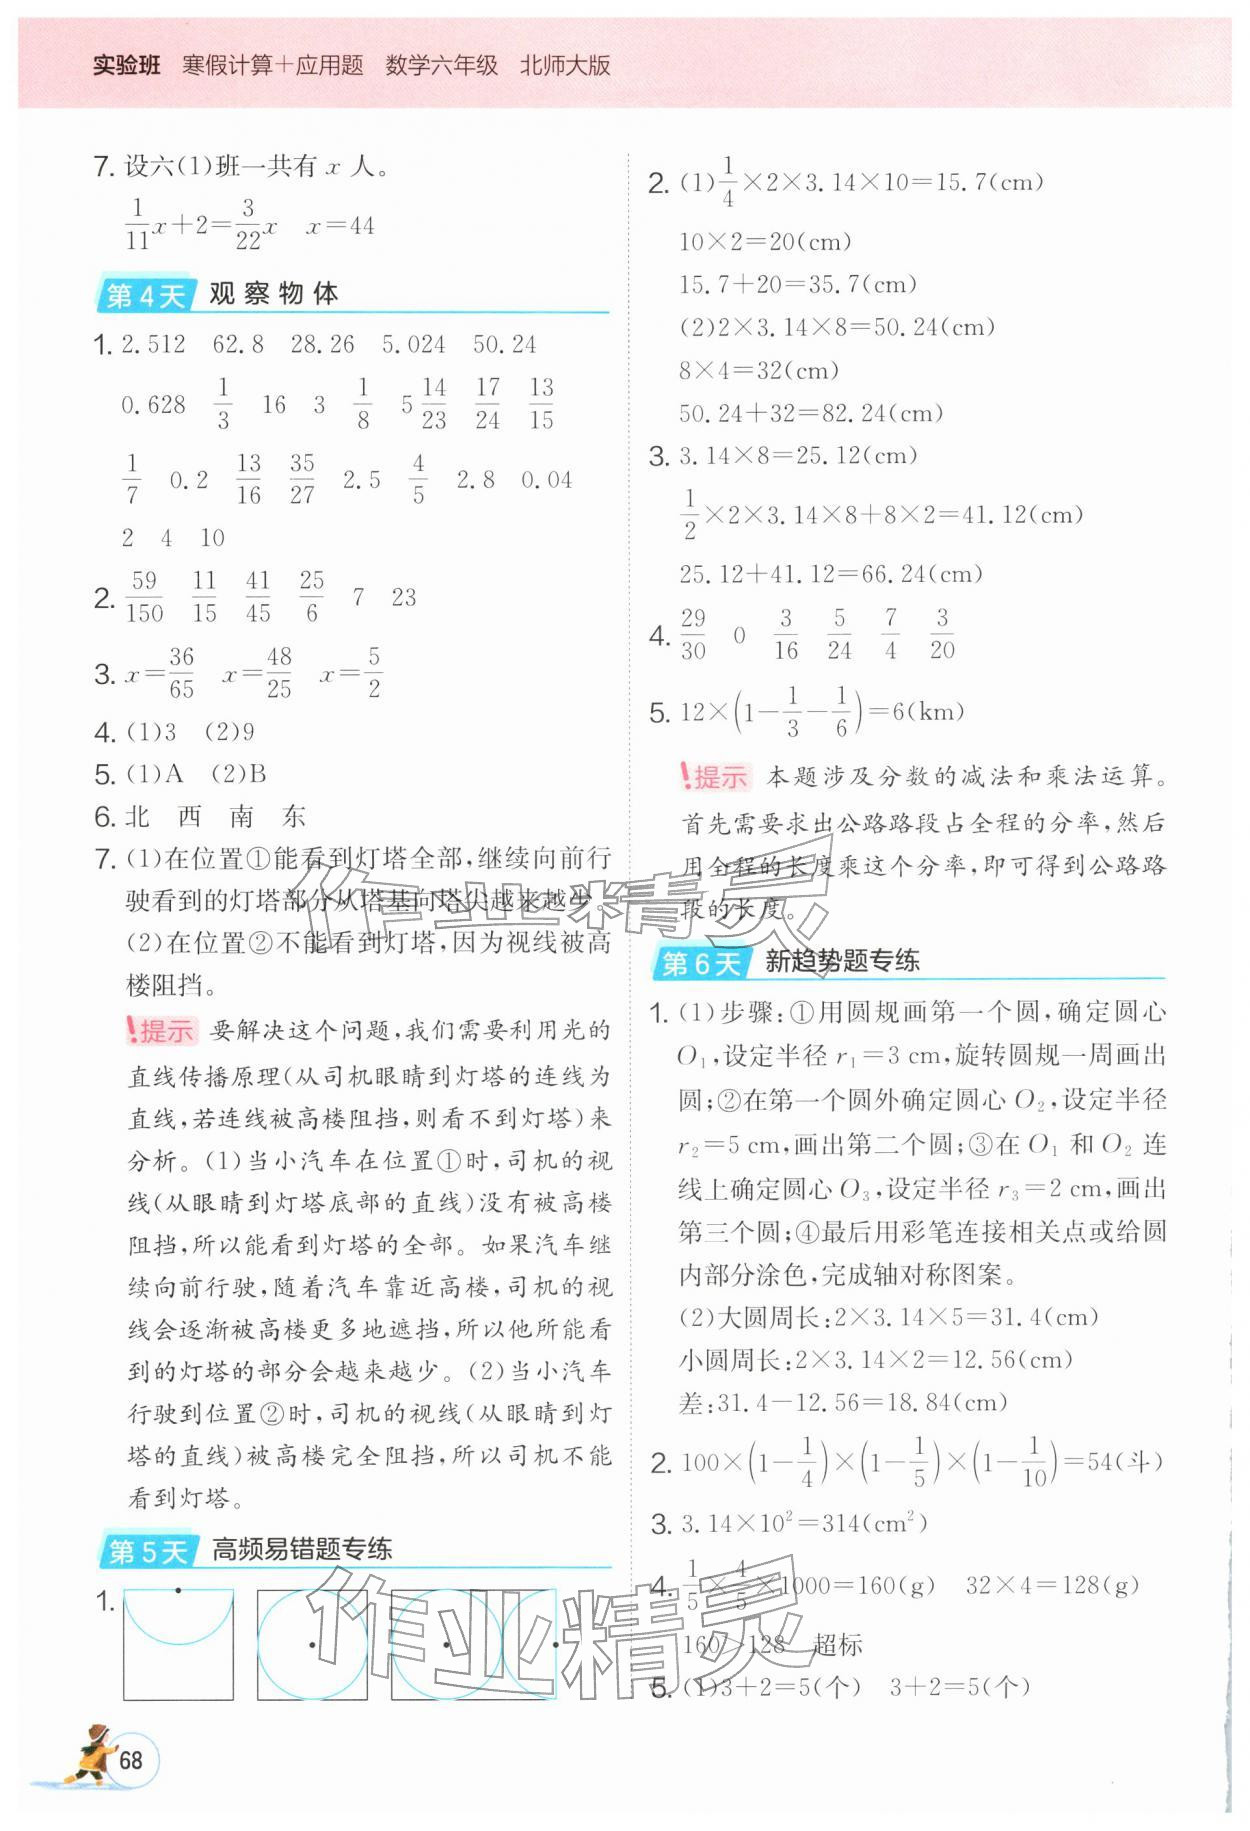 实验班 寒假计算+应用题 数学六年级 北师大版
7. 设六(1)班一共有 x 人。
1/11x+2=3/22x x=44
第4天 观察物体
1. 2.512 62.8 28.26 5.024 50.24
0.628 1/3 16 3 1/8 5 14/23 17/24 13/15
1/7 0.2 13/16 35/27 2.5 4/5 2.8 0.04
2 4 10
2. 59/150 11/15 41/45 25/6 7 23
3. x=36/65 x=48/25 x=5/2
4. (1)3 (2)9
5. (1)A (2)B
6. 北 西 南 东
7. (1)在位置①能看到灯塔全部,继续向前行
驶看到的灯塔部分从塔基向塔尖越来越少。
(2)在位置②不能看到灯塔,因为视线被高
楼阻挡。
!提示 要解决这个问题,我们需要利用光的
直线传播原理(从司机眼睛到灯塔的连线为
直线,若连线被高楼阻挡,则看不到灯塔)来
分析。(1)当小汽车在位置①时,司机的视
线(从眼睛到灯塔底部的直线)没有被高楼
阻挡,所以能看到灯塔的全部。如果汽车继
续向前行驶,随着汽车靠近高楼,司机的视
线会逐渐被高楼更多地遮挡,所以他所能看
到的灯塔的部分会越来越少。(2)当小汽车
行驶到位置②时,司机的视线(从眼睛到灯
塔的直线)被高楼完全阻挡,所以司机不能
看到灯塔。
第5天 高频易错题专练
1.
2. (1)1/4×2×3.14×10=15.7(cm)
10×2=20(cm)
15.7+20=35.7(cm)
(2)2×3.14×8=50.24(cm)
8×4=32(cm)
50.24+32=82.24(cm)
3. 3.14×8=25.12(cm)
1/2×2×3.14×8+8×2=41.12(cm)
25.12+41.12=66.24(cm)
4. 29/30 0 3/16 5/24 7/4 3/20
5. 12×(1-1/3-1/6)=6(km)
!提示 本题涉及分数的减法和乘法运算。
首先需要求出公路路段占全程的分率,然后
用全程的长度乘这个分率,即可得到公路路
段的长度。
第6天 新趋势题专练
1. (1)步骤:①用圆规画第一个圆,确定圆心
O₁,设定半径 r₁=3 cm,旋转圆规一周画出
圆;②在第一个圆外确定圆心 O₂,设定半径
r₂=5 cm,画出第二个圆;③在 O₁ 和 O₂ 连
线上确定圆心 O₃,设定半径 r₃=2 cm,画出
第三个圆;④最后用彩笔连接相关点或给圆
内部分涂色,完成轴对称图案。
(2)大圆周长:2×3.14×5=31.4(cm)
小圆周长:2×3.14×2=12.56(cm)
差:31.4-12.56=18.84(cm)
2. 100×(1-1/4)×(1-1/5)×(1-1/10)=54(斗)
3. 3.14×10²=314(cm²)
4. 1/5×4/5×1000=160(g) 32×4=128(g)
160>128 超标
5. (1)3+2=5(个) 3+2=5(个)
作业精灵
作业精灵
68